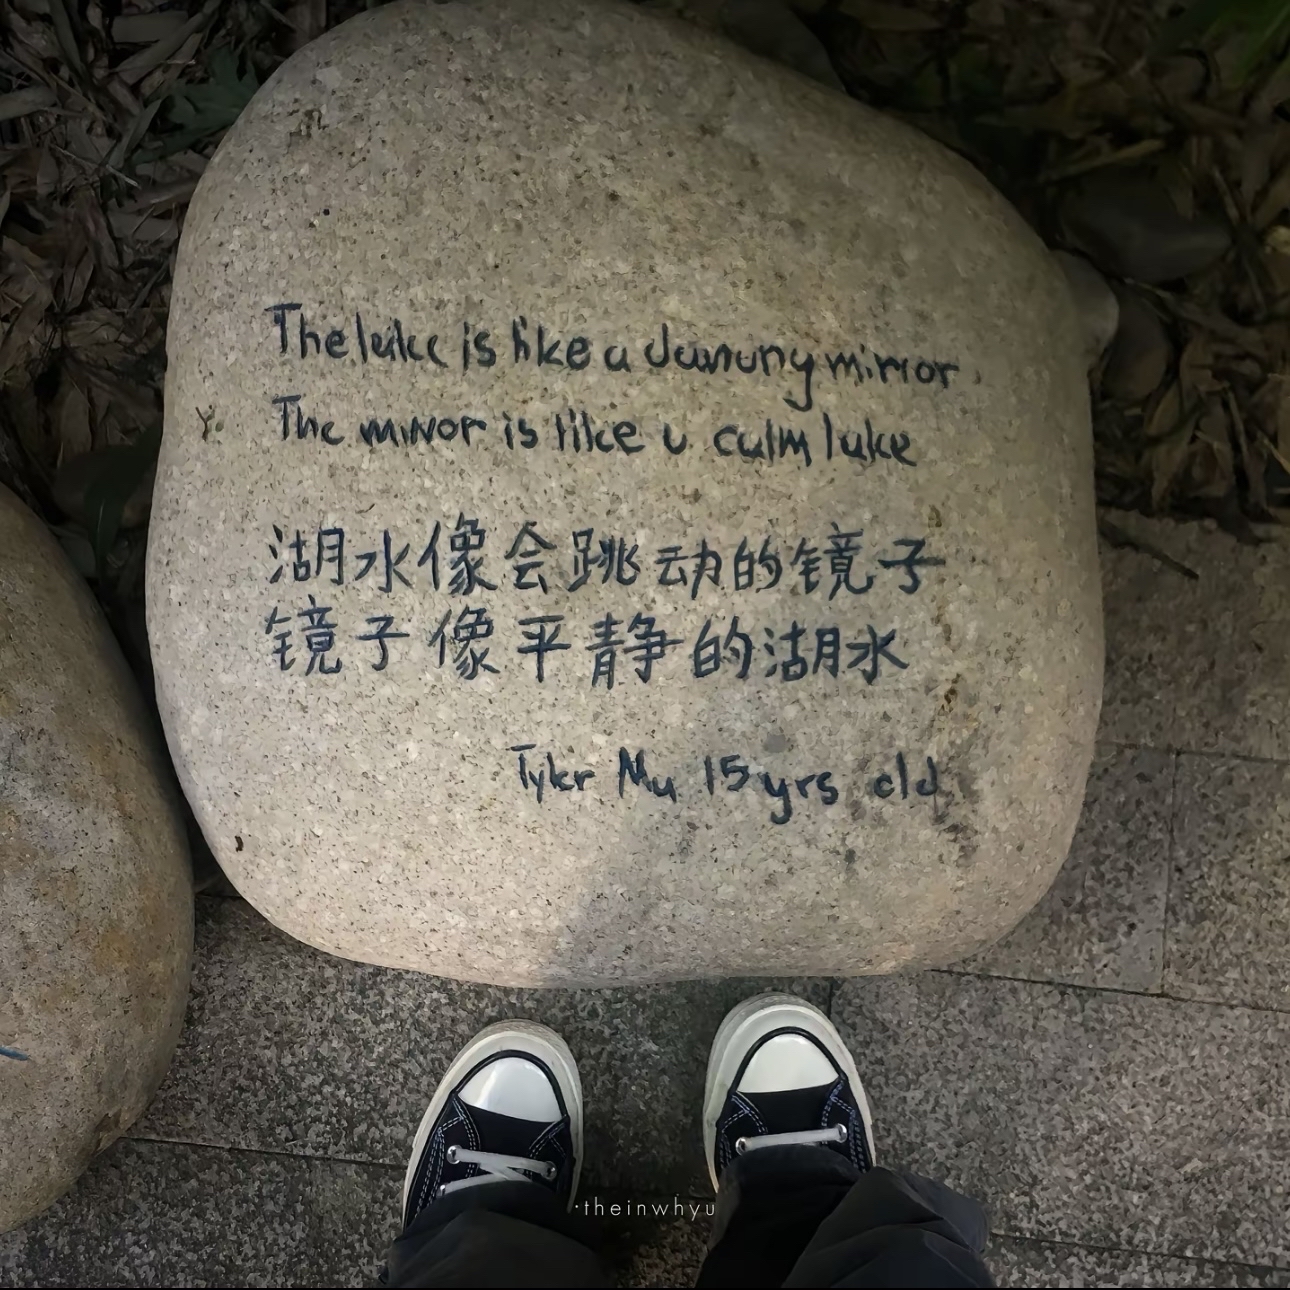 The lake is like a dancing mirror
The mirror is like a calm lake
湖水像会跳动的镜子
镜子像平静的湖水
Tyker Mu 15 yrs old
·theinwhyu